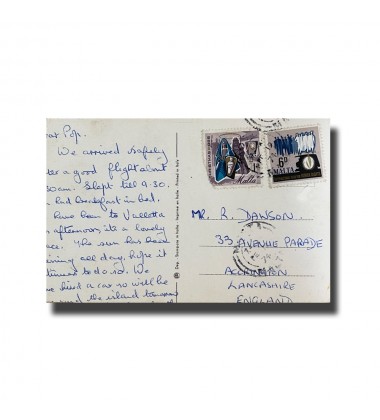 ear Pop,
We arrived safely
ter a good flight about
30am. Slept till 9.30.
had breakfast in bed.
have been to Valletta
afternoon its a lovely
ace. The sun has been
ining all day, hope it
tinues to do so. We
hired a car so will be
the island tomorrow
Malta
6D
MALTA
MR. R. DAWSON,
33, AVENUE PARADE
ACCRINGTON
LANCASHIRE
ENGLAND